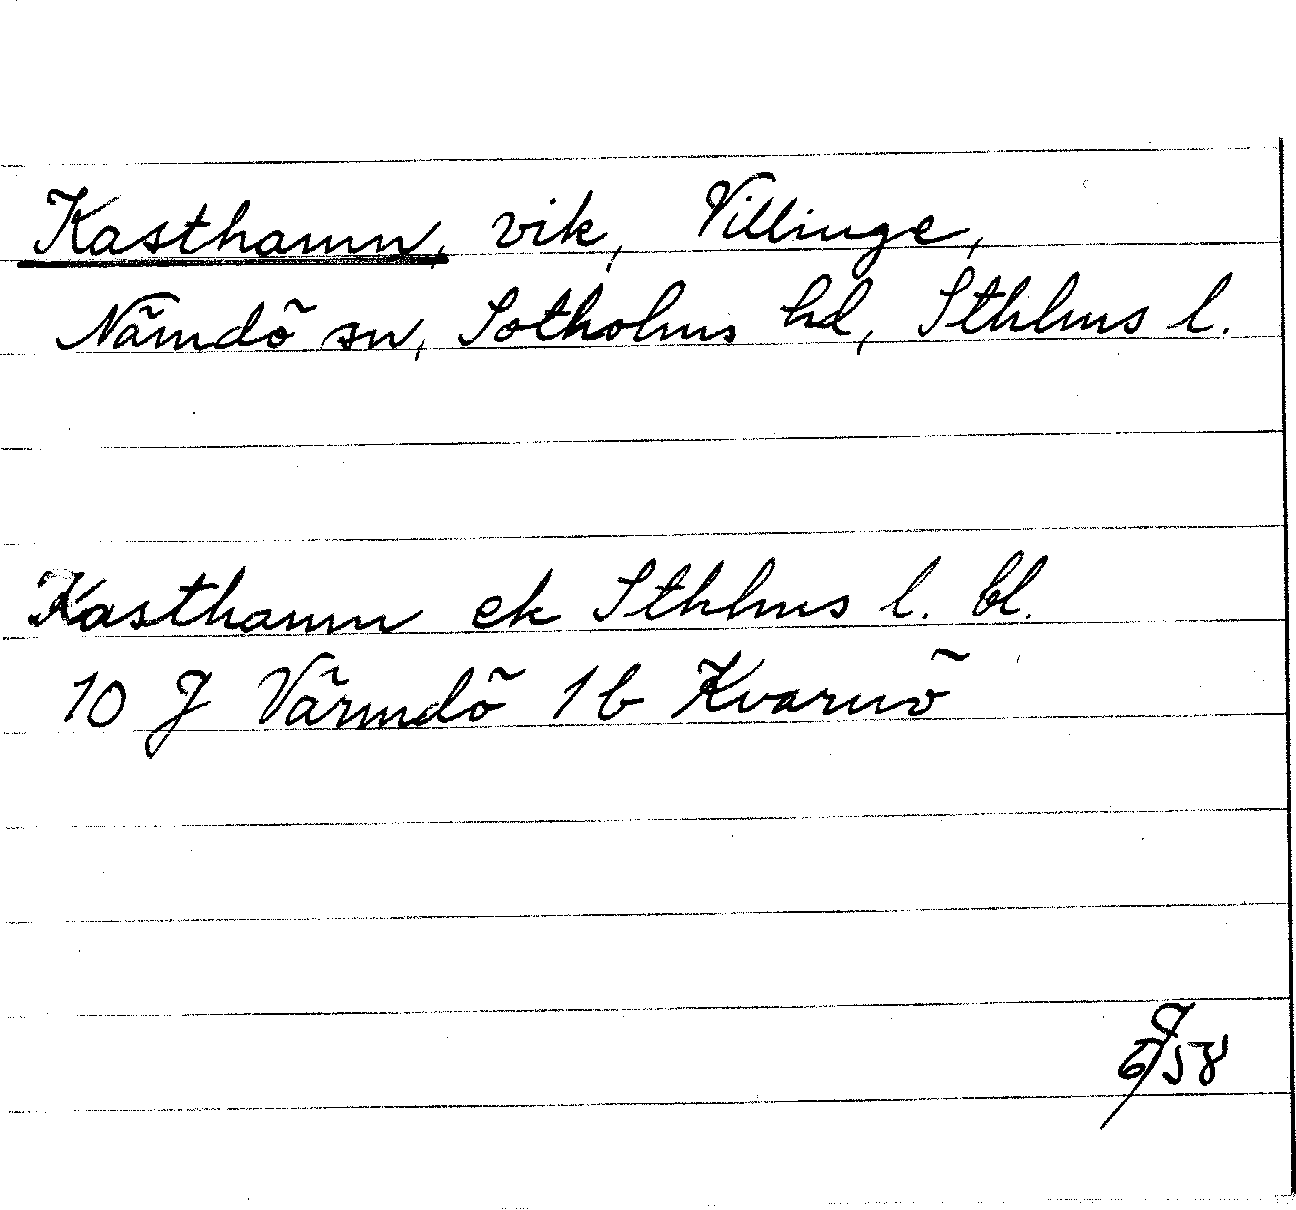 Kasthamn, vik, Villinge,
Nämdö sn, Sotholms hd, Sthlms l.
Kasthamn ek Sthlms l. bl.
10 J Värmdö 1b Kvarnö
58